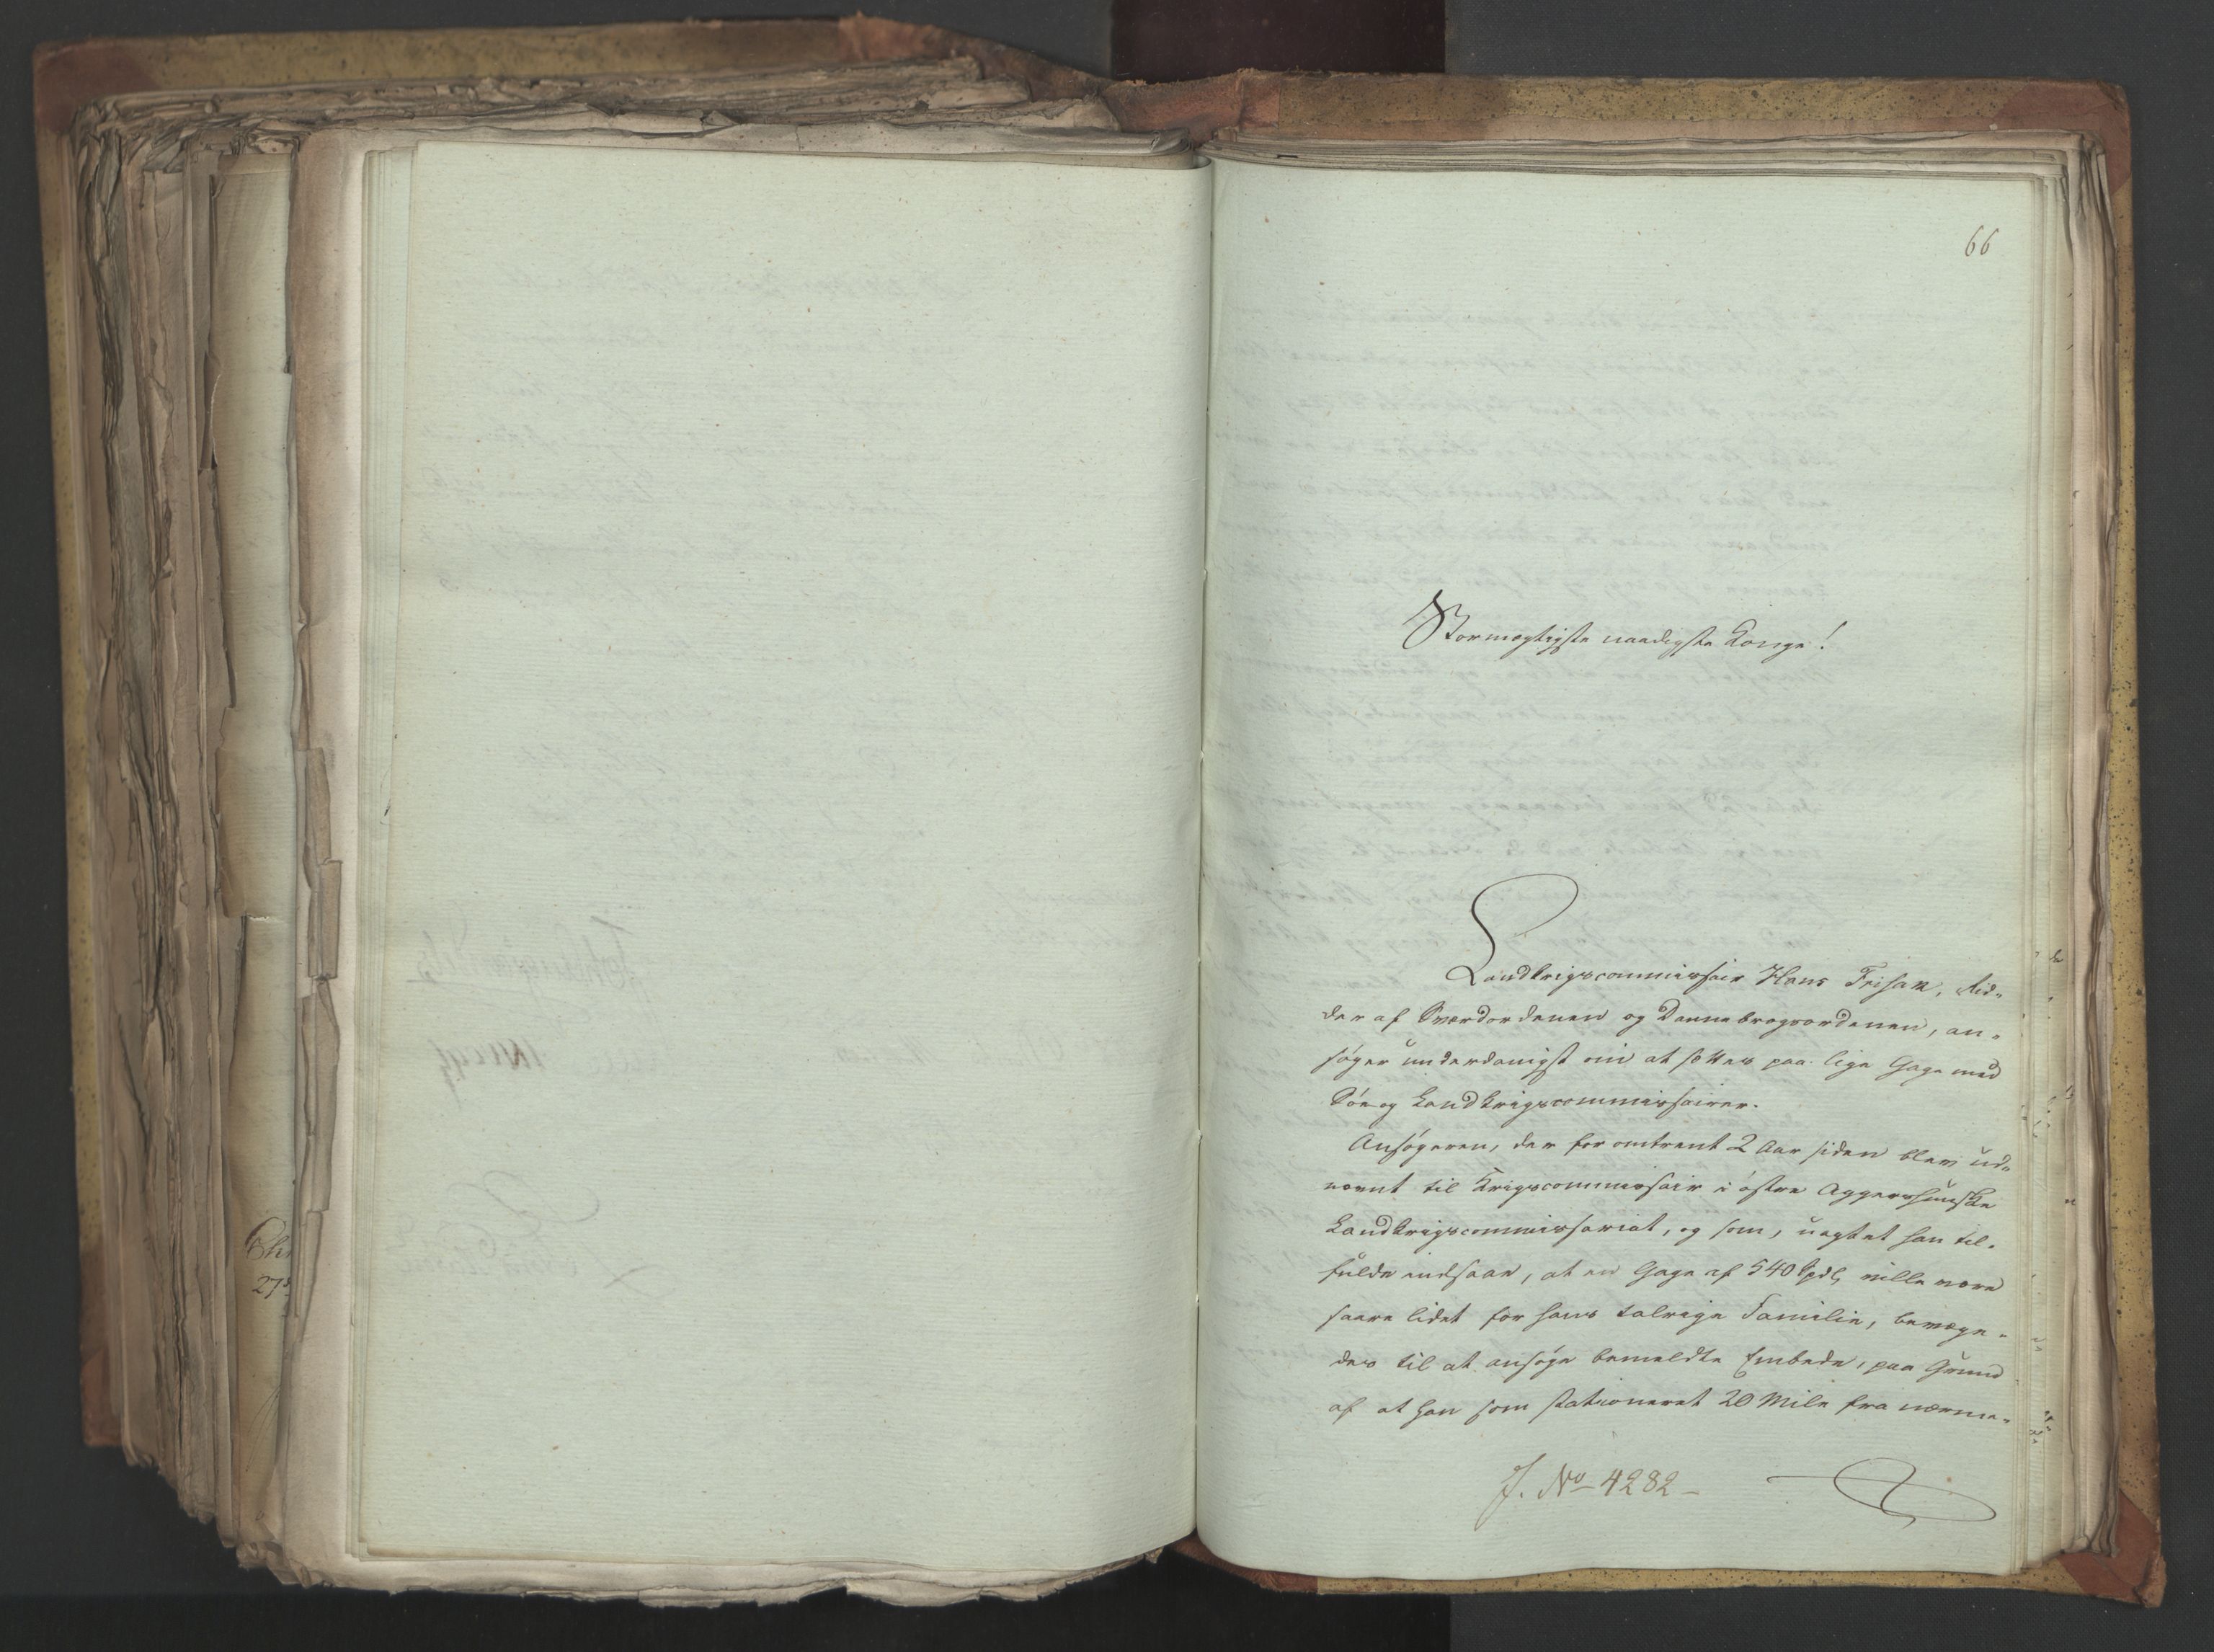 66
Stormægtigste naadigste Konge!
Landkrigscommissair Hans Frisak, Rid-
der af Sværdordenen og Dannebrogsordenen, an-
søger underdanigst om at sættes paa lige Gage med
Søe og Landkrigscommissairer.
Ansøgeren, der for omtrent 2 Aar siden blev ud-
nævnt til Krigscommissair i østre Aggershuuske
Landkrigscommissariat, og som, uagtet han til-
fulde indsaae, at en Gage af 540 Spdl, ville være
saare lidet for hans talrige Familie, bevæge-
des til at ansøge bemeldte Embede, paa Grund
af at han som stationeret 20 Mile fra nærme-
J. No 4282
Chr
27